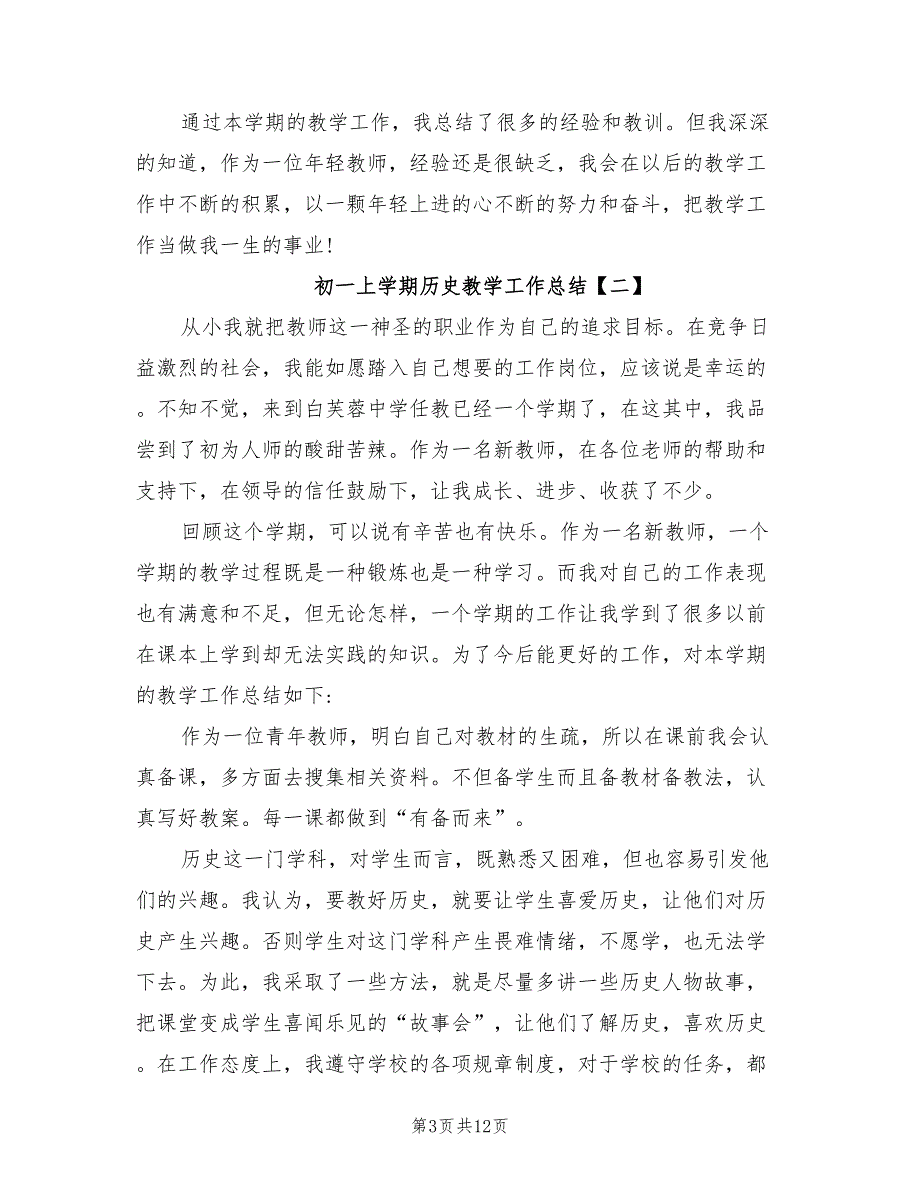 通过本学期的教学工作，我总结了很多的经验和教训。但我深深
的知道，作为一位年轻教师，经验还是很缺乏，我会在以后的教学工
作中不断的积累，以一颗年轻上进的心不断的努力和奋斗，把教学工
作当做我一生的事业!
初一上学期历史教学工作总结【二】
从小我就把教师这一神圣的职业作为自己的追求目标。在竞争日
益激烈的社会，我能如愿踏入自己想要的工作岗位，应该说是幸运的
。不知不觉，来到白芙蓉中学任教已经一个学期了，在这其中，我品
尝到了初为人师的酸甜苦辣。作为一名新教师，在各位老师的帮助和
支持下，在领导的信任鼓励下，让我成长、进步、收获了不少。
回顾这个学期，可以说有辛苦也有快乐。作为一名新教师，一个
学期的教学过程既是一种锻炼也是一种学习。而我对自己的工作表现
也有满意和不足，但无论怎样，一个学期的工作让我学到了很多以前
在课本上学到却无法实践的知识。为了今后能更好的工作，对本学期
的教学工作总结如下:
作为一位青年教师，明白自己对教材的生疏，所以在课前我会认
真备课，多方面去搜集相关资料。不但备学生而且备教材备教法，认
真写好教案。每一课都做到“有备而来”。
历史这一门学科，对学生而言，既熟悉又困难，但也容易引发他
们的兴趣。我认为，要教好历史，就要让学生喜爱历史，让他们对历
史产生兴趣。否则学生对这门学科产生畏难情绪，不愿学，也无法学
下去。为此，我采取了一些方法，就是尽量多讲一些历史人物故事，
把课堂变成学生喜闻乐见的“故事会”，让他们了解历史，喜欢历史
。在工作态度上，我遵守学校的各项规章制度，对于学校的任务，都
第3页共12页